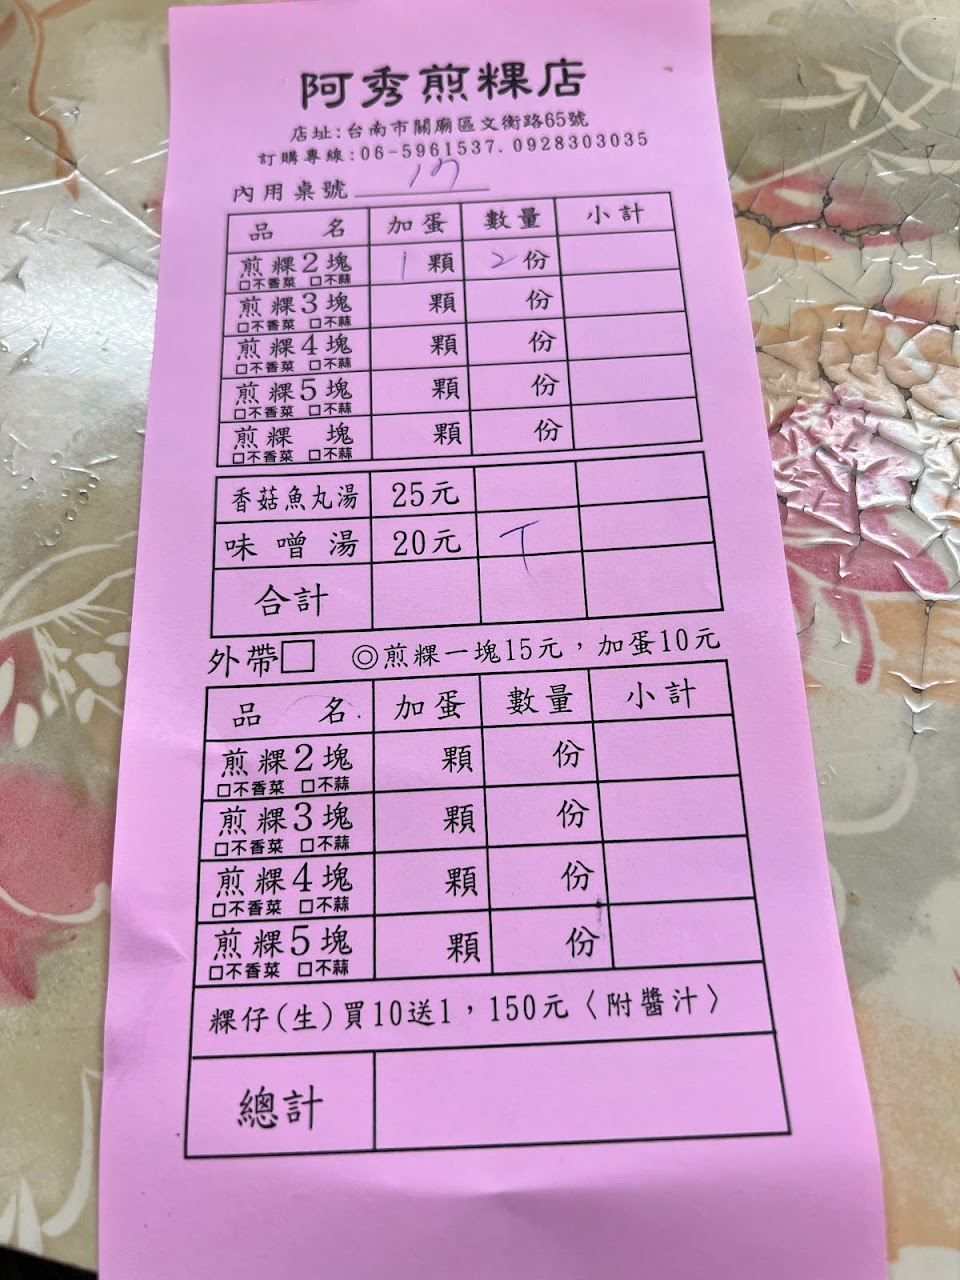 阿秀煎粿店
店址:台南市關廟區文衡路65號
訂購專線:06-5961537.0928303035
內用桌號
品 名 加蛋 數量 小計
煎粿2塊 1顆 2份
□不香菜 □不蒜
煎粿3塊 顆 份
□不香菜 □不蒜
煎粿4塊 顆 份
□不香菜 □不蒜
煎粿5塊 顆 份
□不香菜 □不蒜
煎粿 塊 顆 份
□不香菜 □不蒜
香菇魚丸湯 25元
味噌湯 20元
合計
外帶□ ◎煎粿一塊15元，加蛋10元
品 名 加蛋 數量 小計
煎粿2塊 顆 份
□不香菜 □不蒜
煎粿3塊 顆 份
□不香菜 □不蒜
煎粿4塊 顆 份
□不香菜 □不蒜
煎粿5塊 顆 份
□不香菜 □不蒜
粿仔(生)買10送1，150元〈附醬汁〉
總計